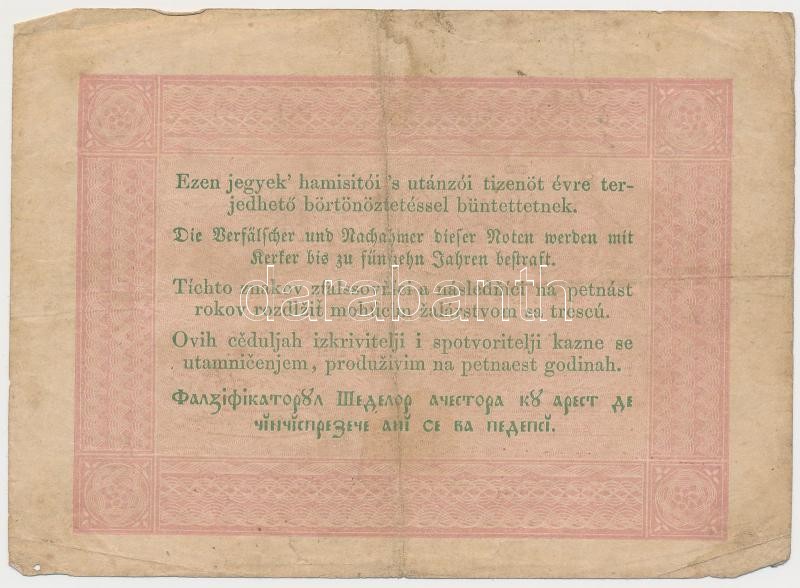 Ezen jegyek' hamisitói 's utánzói tizenöt évre ter-
jedhető börtönöztetéssel büntettetnek.
Die Verfälscher und Nachahmer dieser Noten werden mit
Kerker bis zu fünfzehn Jahren bestraft.
Tíchto znakov zfalssovňíci a následňíci na petnást
rokov rozdlžiť mohúcim žalárstvom sa trescú.
darabanth
Ovih cěduljah izkrivitelji i spotvoritelji kazne se
utamničenjem, produživim na petnaest godinah.
Фалꙁіфікаторꙋл Шеделор ачестора кꙋ арест де
чінчіспреꙁече ані се ва педепсі.